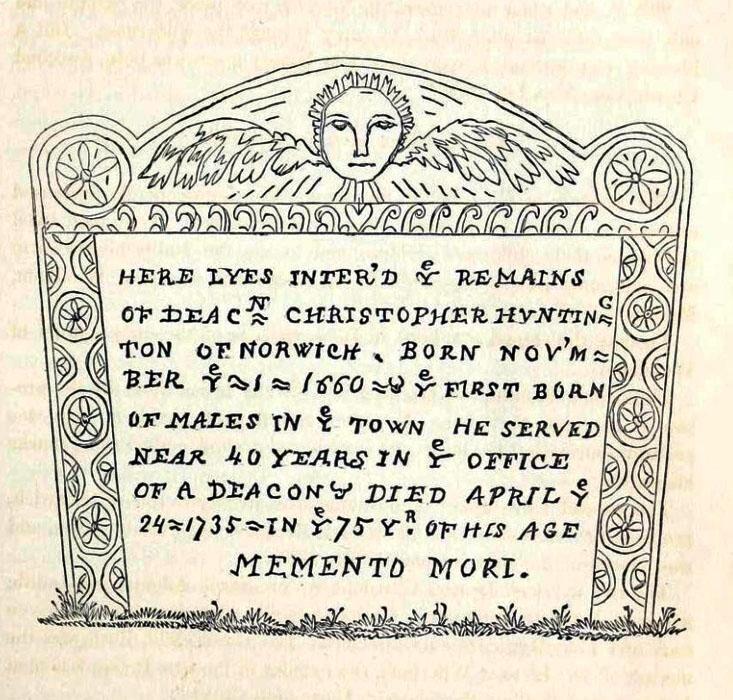 HERE LYES INTER'D Yᵉ REMAINS
OF DEACᴺ≈ CHRISTOPHER HVNTINᴳ≈
TON OF NORWICH, BORN NOV'M≈
BER Yᵉ≈1≈1660≈& Yᵉ FIRST BORN
OF MALES IN Yᵉ TOWN HE SERVED
NEAR 40 YEARS IN Yᵉ OFFICE
OF A DEACON & DIED APRIL Yᵉ
24≈1735≈IN Yᵉ 75 Yᴿ. OF HIS AGE
MEMENTO MORI.